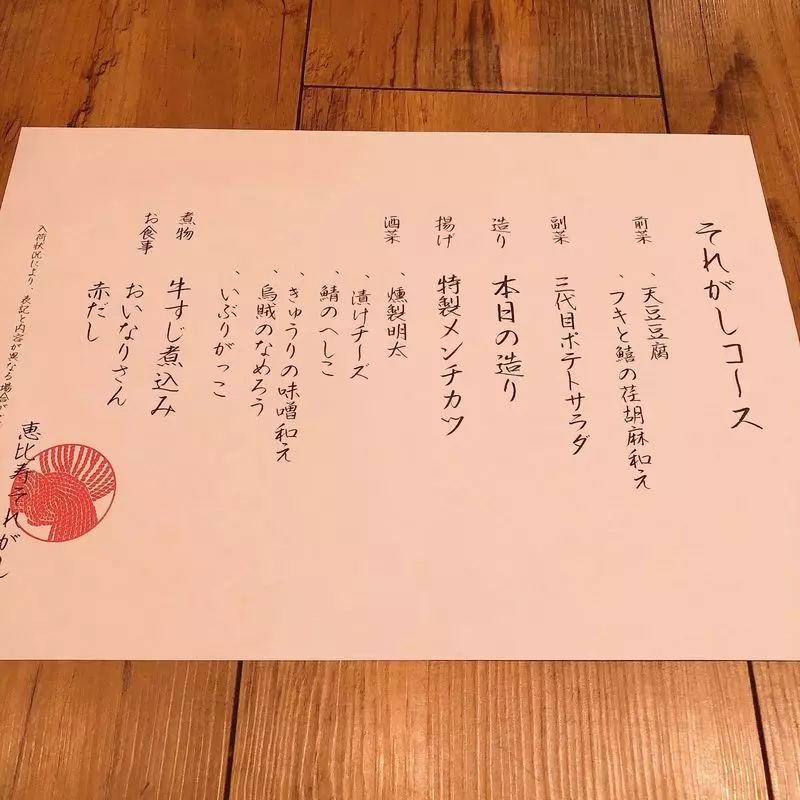 それがしコース
前菜
、天豆豆腐
、フキと鱚の荏胡麻和え
副菜
三代目ポテトサラダ
造り
本日の造り
揚げ
特製メンチカツ
酒菜
、燻製明太
、漬けチーズ
、鯖のへしこ
、きゅうりの味噌和え
、烏賊のなめろう
、いぶりがっこ
煮物
牛すじ煮込み
お食事
おいなりさん
赤だし
入荷状況により、表記と内容が異なる場合が
恵比寿それがし